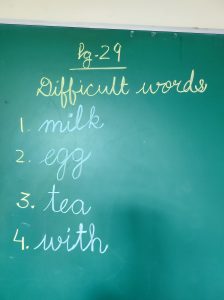 Pg.29
Difficult words
1. milk
2. egg
3. tea
4. with